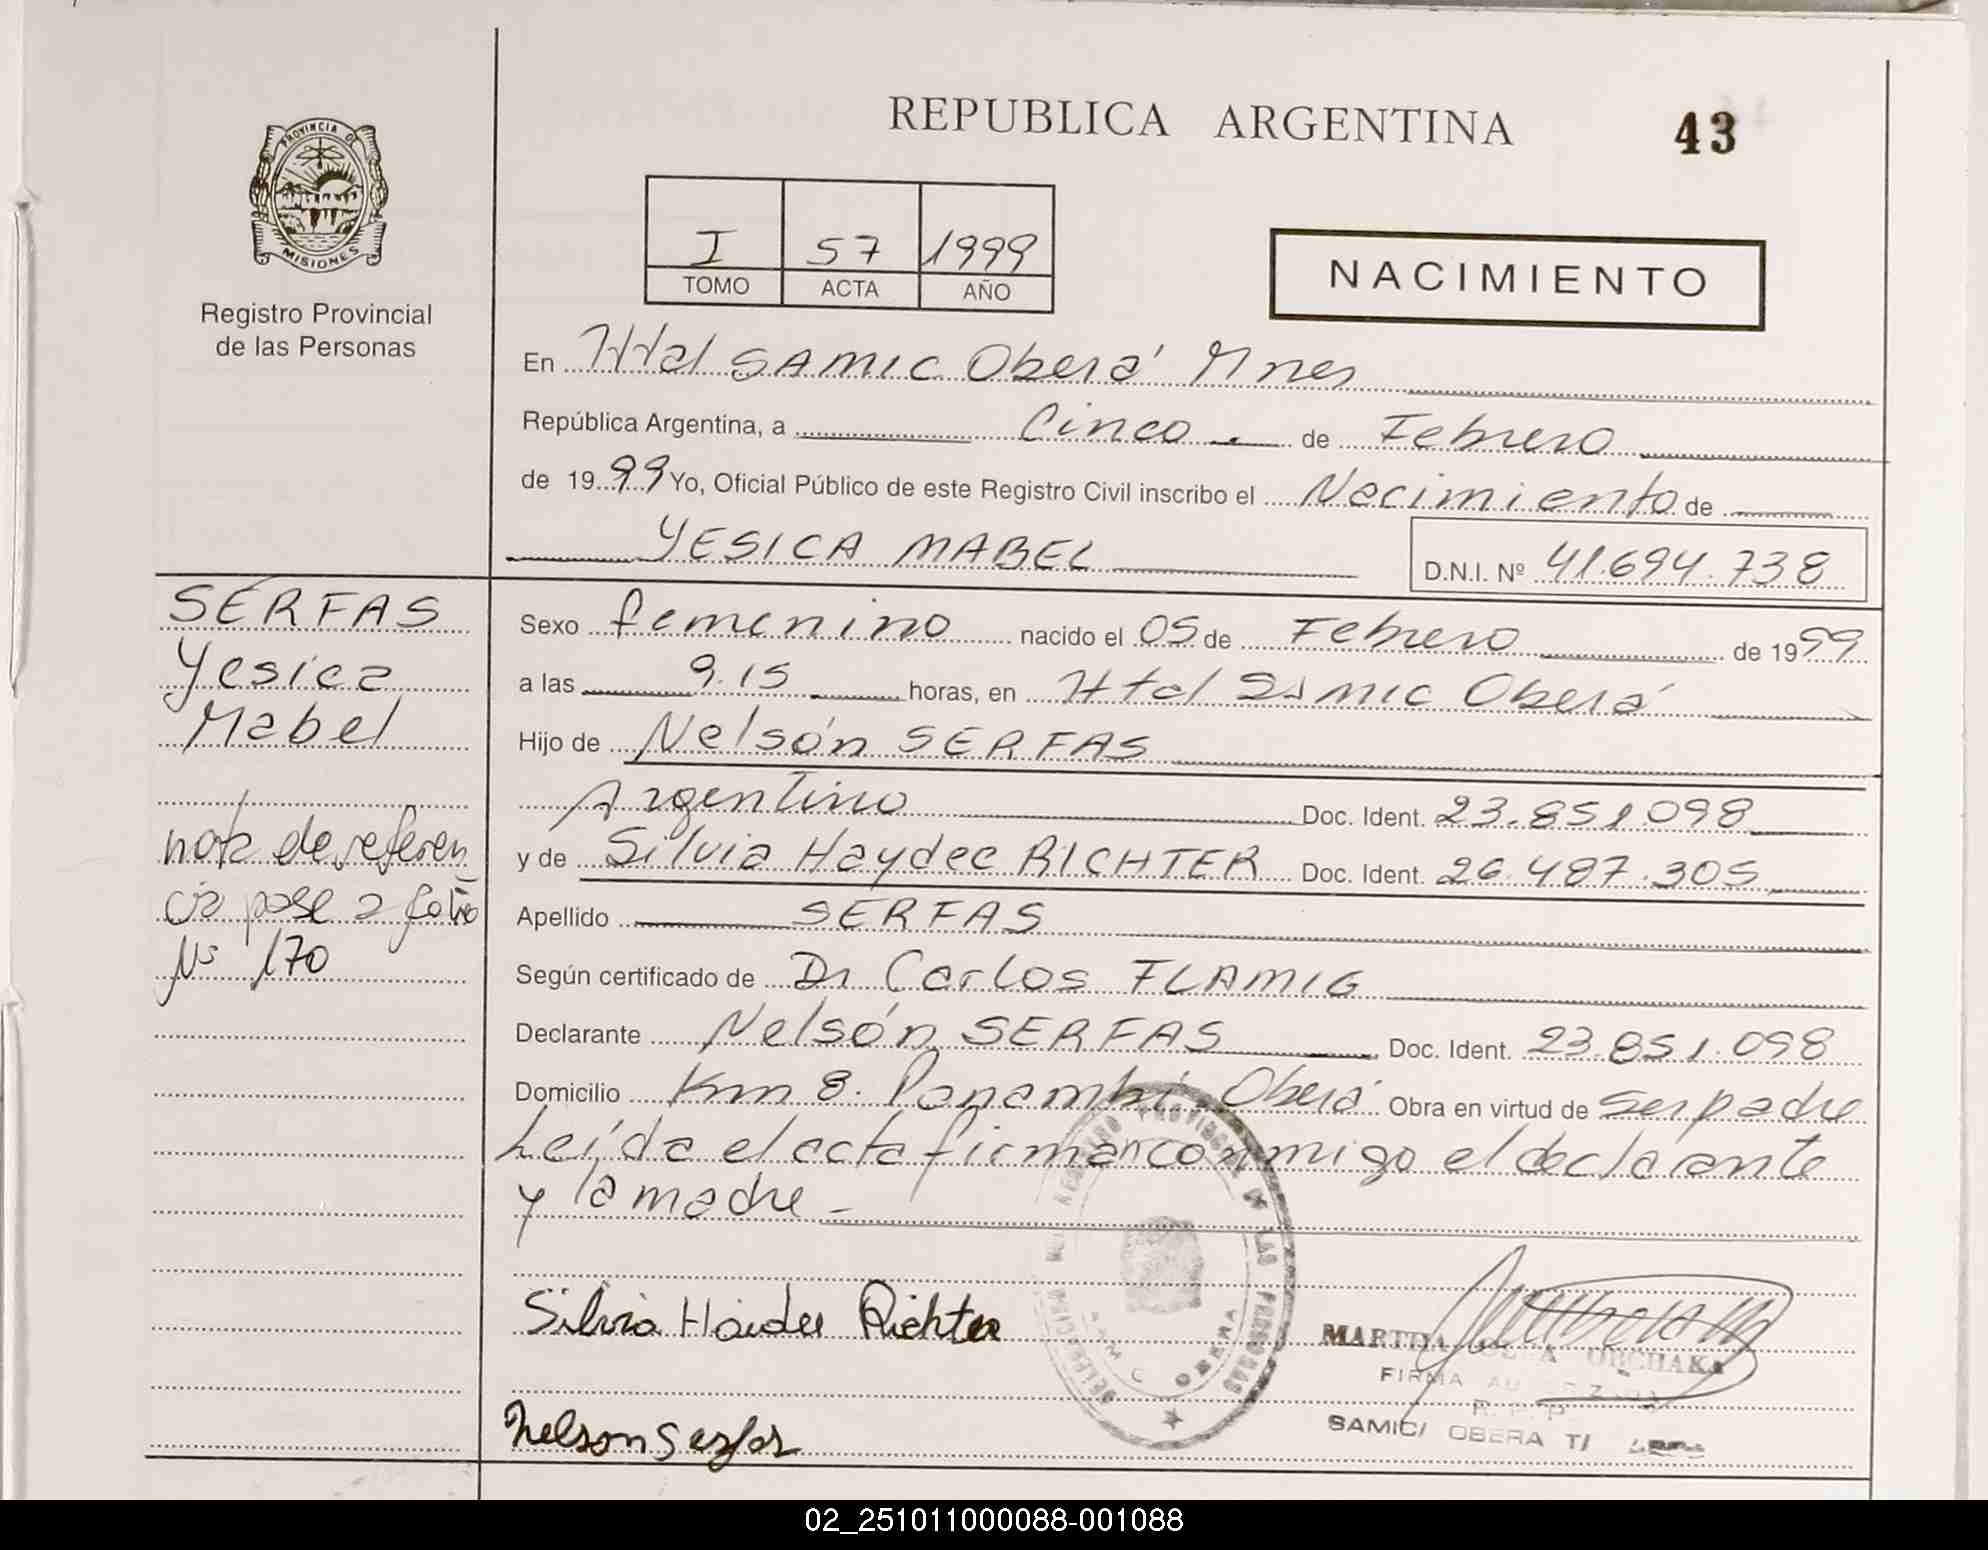 REPUBLICA ARGENTINA
43
PROVINCIA DE
MISIONES
Registro Provincial
de las Personas
I 57 1999
TOMO ACTA AÑO
NACIMIENTO
En Htal SAMIC Oberá Mnes
República Argentina, a Cinco de Febrero
de 1999 Yo, Oficial Público de este Registro Civil inscribo el Nacimiento de
YESICA MABEL
D.N.I. Nº 41.694.738
SERFAS
Yesica
Mabel
nota de referen
cia pase a folio
Nº 170
Sexo femenino nacido el 05 de Febrero de 1999
a las 9.15 horas, en Htal Samic Oberá
Hijo de Nelsón SERFAS
Argentino Doc. Ident. 23.851.098
y de Silvia Haydee RICHTER Doc. Ident. 26.487.305
Apellido SERFAS
Según certificado de Dr Carlos FLAMIG
Declarante Nelsón SERFAS Doc. Ident. 23.851.098
Domicilio Km 8. Panambí. Oberá Obra en virtud de ser padre
Leída el acta firman conmigo el declarante
y la madre
Silvia Haidee Richter
Nelson Serfas
DELEGACION REGISTRO PROVINCIAL DE LAS PERSONAS
MARTHA
FIRMA
SAMIC/ OBERA
02_251011000088-001088